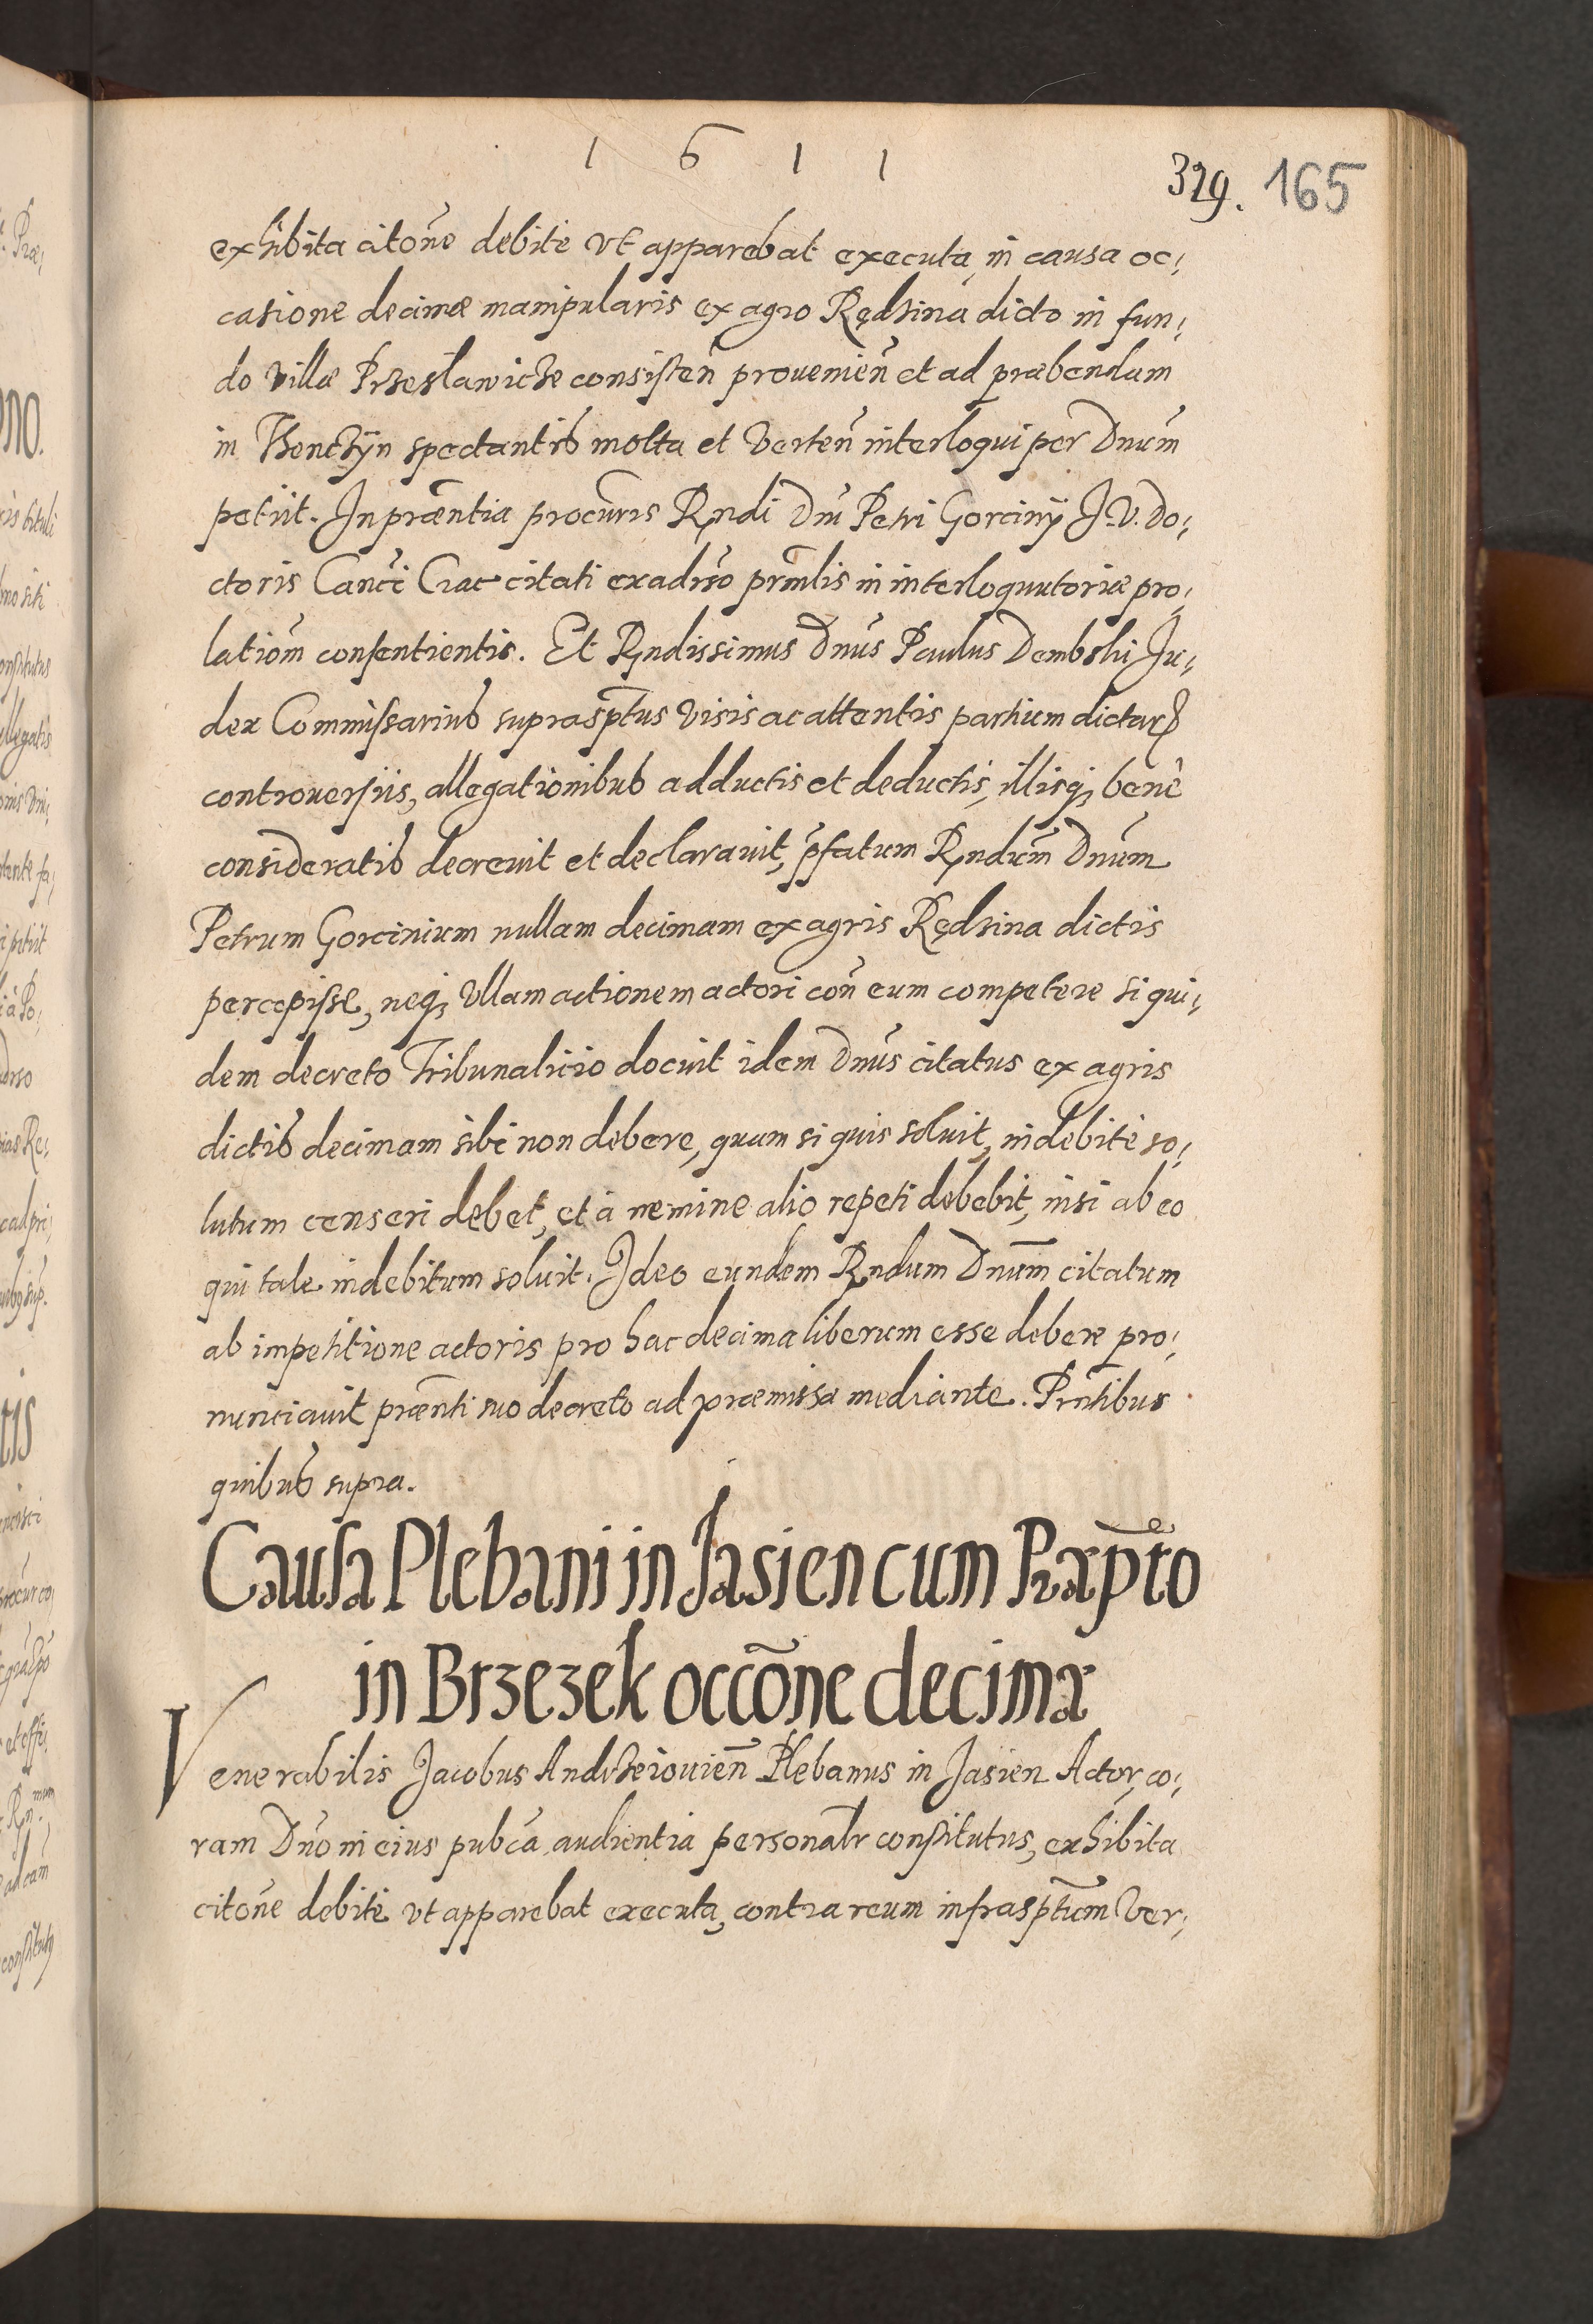 1 6 1 1
329. 165
exhibita citoñe debite vt apparebat executa, in causa oc,
casione decimæ manipularis ex agro Rędzina dicto in fun,
do villæ Przeslawicze consisteñ prouenieñ et ad præbendam
in Thenczÿn spectantis molta et verteñ interloqui per Dnum̃
petiit. In præntia procuris Rndi Dni Petri Gorcinÿ J. V. do,
ctoris Canci Crac citati ex aduso prmlis in interloquutoriæ pro,
lation̄m consentientis. Et Rndissimus Dnus Paulus Dembski Ju,
dex Commissarius suprasptus visis ac attentis partium dictarꝝ
controuersiis, allegationibus adductis et deductis, illisq; benè
consideratis decreuit et declarauit, p̄fatum Rndum̃ Dnum̃
Petrum Gorcinium nullam decimam ex agris Rędzina dictis
percepisse, neq; vllam actionem actori con̄ eum competere siqui,
dem decreto Tribunalicio docuit idem Dnus citatus ex agris
dictis decimam sibi non debere, quam si quis soluit, indebitè so,
lutum censeri debet, et à nemine alio repeti debebit, nisi ab eo
qui tale indebitum soluit. Ideo eundem Rndum Dnum̃ citatum
ab impetitione actoris pro hac decima liberum esse debere pro,
nunciauit prænti suo decreto ad præmissa mediante. Prntibus
quibus supra.
Causa Plebani in Jasien cum Præpto
in Brzezek occōne decimæ
Venerabilis Jacobus Andrzeiouieñ Plebanus in Jasien Actor, co,
ram Dno in eius pubca audientia personalr constitutus, exhibita
citoñe debitè vt apparebat executa, contra reum infrasptum Ver,